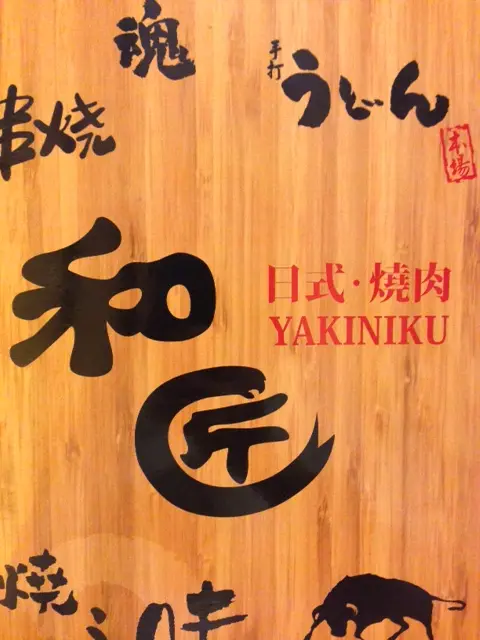 魂
手打
うどん
本場
串焼
和
日式·燒肉
YAKINIKU
匠
燒
味